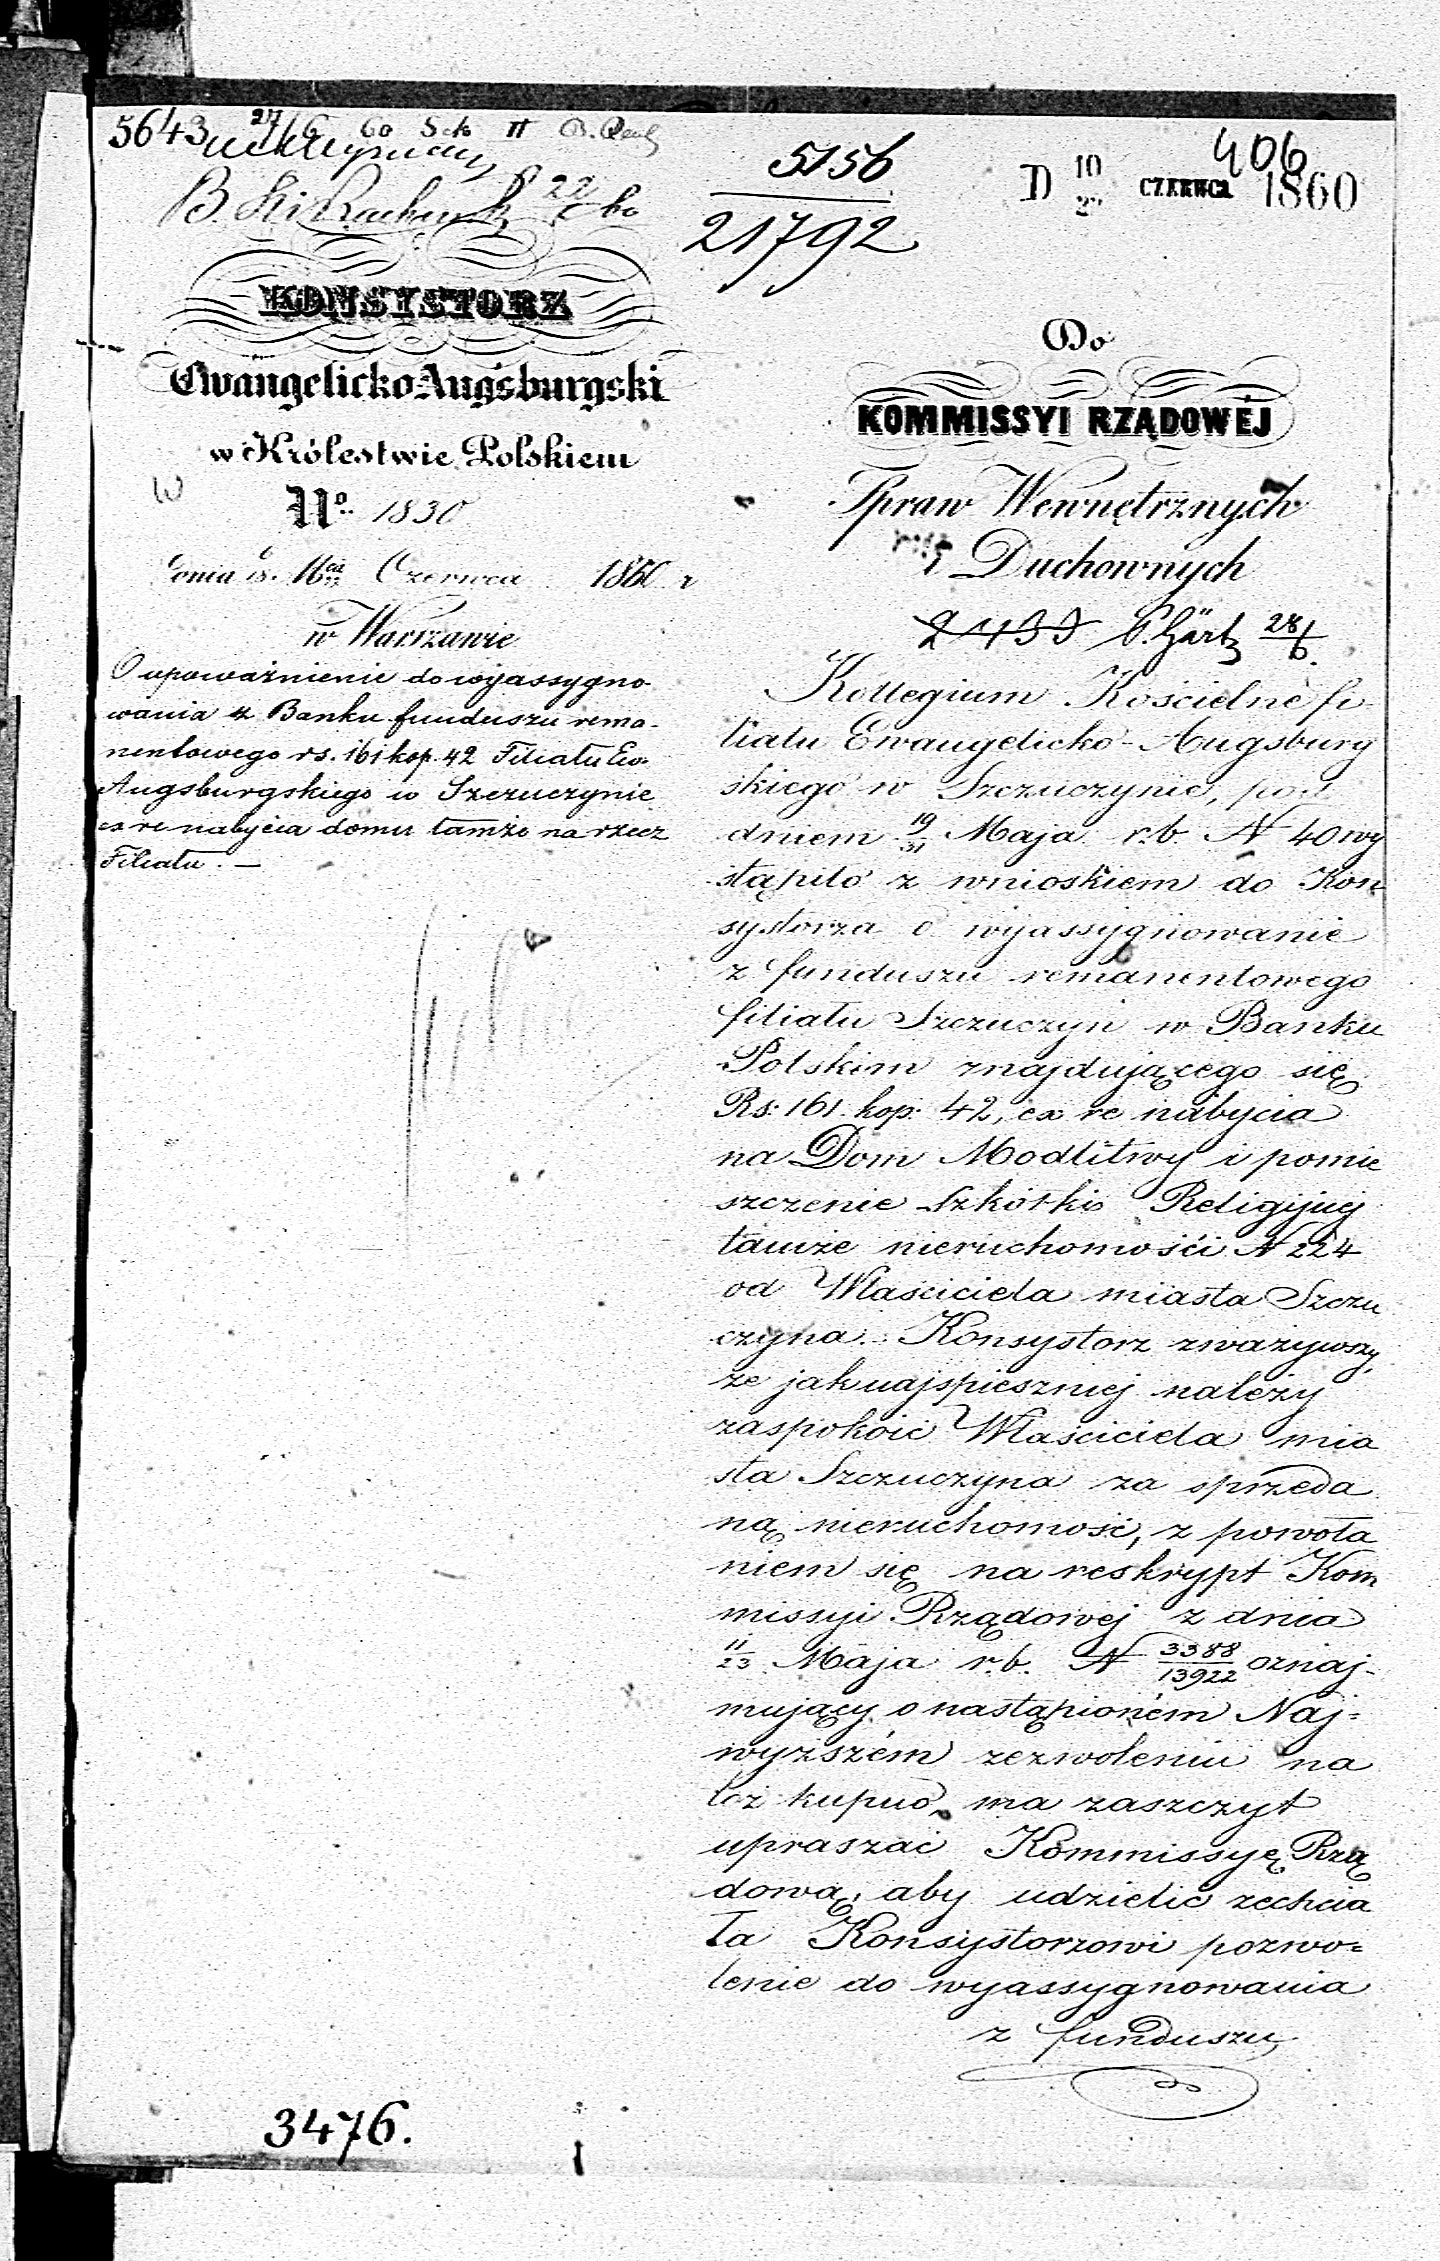 5643
27/6 60 Sek II
5156
21792
406
D 10 CZERWCA 1860
22
KONSYSTORZ
Ewangelicko-Augsburgski
w Królestwie Polskiem
No. 1830
dnia Czerwca 1860 r
w Warszawie
O upoważnienie do wyassygno-
wania z Banku funduszu rema-
nentowego rs. 161 kop. 42 Filiału Ew.
Augsburgskiego w Szczuczynie
ex re nabycia domu tamże na rzecz
Filiału. —
Do
KOMMISSYI RZĄDOWÉJ
Spraw Wewnętrznych
i Duchownych
2433 28/6.
Kollegium Kościelne fi-
liału Ewangelicko-Augsburg
skiego w Szczuczynie, pod
dniem 19/31 Maja r.b. N 40 wy
stąpiło z wnioskiem do Kon-
systorza o wyassygnowanie
z funduszu remanentowego
filiału Szczuczyn w Banku
Polskim znajdującego się
Rs: 161 kop: 42, ex re nabycia
na Dom Modlitwy i pomie
szczenie Szkółki Religijnej
tamże nieruchomości N 224
od Właściciela miasta Szczu
czyna. Konsystorz zważywszy,
że jak najspieszniej należy
zaspokoić Właściciela mia
sta Szczuczyna za sprzeda
ną nieruchomość, z powoła
niem się na reskrypt Kom
missyi Rządowej z dnia
11/23 Maja r.b. N 3388/13922 oznaj-
mujący o nastąpioném Naj-
wyższém zezwoleniu na
toż kupno, ma zaszczyt
upraszać Kommissyę Rzą
dową, aby udzielić zechcia
ła Konsystorzowi pozwo-
lenie do wyassygnowania
z funduszu
3476.